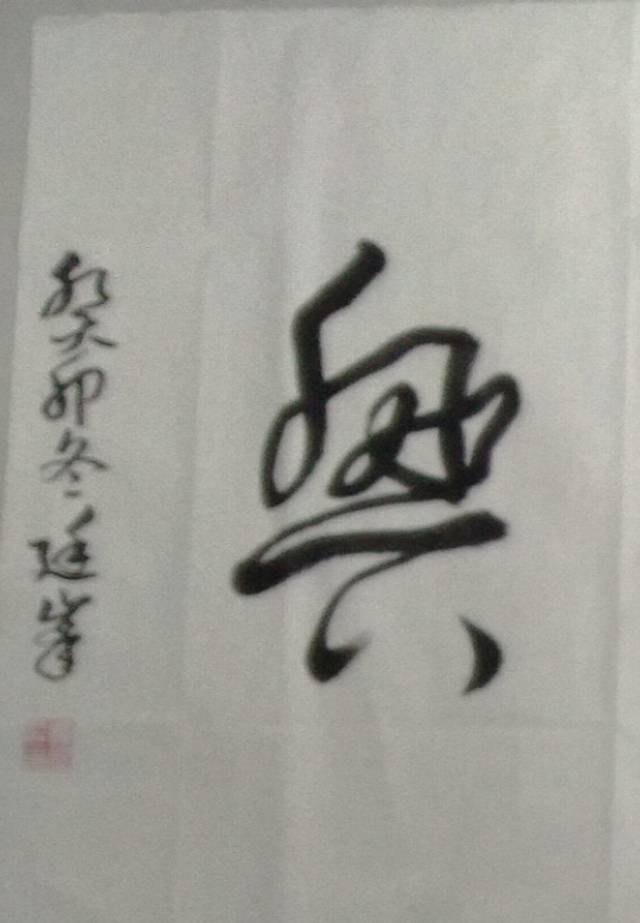 興
癸卯冬廷峯